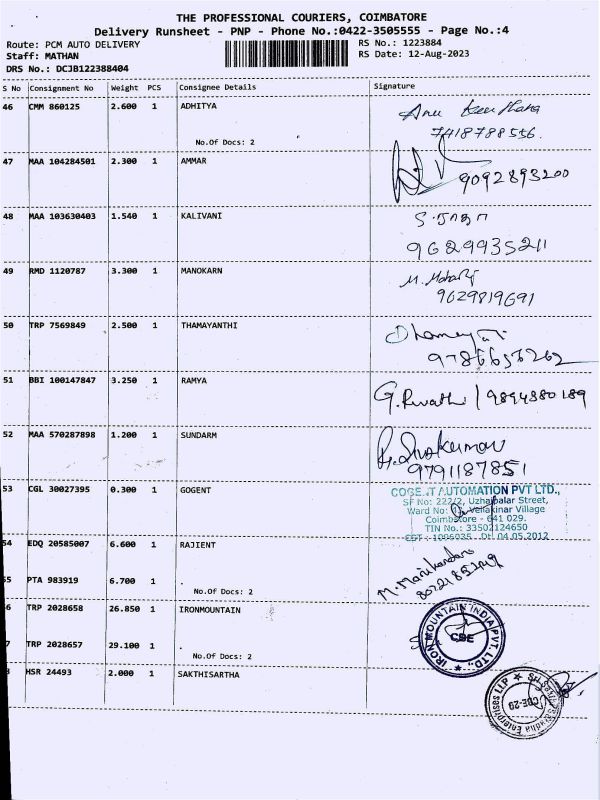 THE PROFESSIONAL COURIERS, COIMBATORE
Delivery Runsheet - PNP - Phone No.:0422-3505555 - Page No.:4
Route: PCM AUTO DELIVERY
RS No.: 1223884
Staff: MATHAN
RS Date: 12-Aug-2023
DRS No.: DCJB122388404
S No Consignment No Weight PCS Consignee Details Signature
46 CMM 860125 2.600 1 ADHITYA
7418788556.
No.Of Docs: 2
47 MAA 104284501 2.300 1 AMMAR
9092893200
48 MAA 103630403 1.540 1 KALIVANI
S. ராதா
9629935211
49 RMD 1120787 3.300 1 MANOKARN
9629819691
50 TRP 7569849 2.500 1 THAMAYANTHI
51 BBI 100147847 3.250 1 RAMYA
9894380189
52 MAA 570287898 1.200 1 SUNDARM
9791187851
53 CGL 30027395 0.300 1 GOGENT
COGENT AUTOMATION PVT LTD.,
SF No: 222/2, Uzhaipalar Street,
Ward No: Vellakinar Village
Coimbatore - 641 029.
TIN No.: 33502124650
CST : 1096035 Dt. 04.05.2012
54 EDQ 20585007 6.600 1 RAJIENT
M. Manikandan
PTA 983919 6.700 1
No.Of Docs: 2
TRP 2028658 26.850 1 IRONMOUNTAIN
IRON MOUNTAIN INDIA PVT. LTD.,
CBE
TRP 2028657 29.100 1
No.Of Docs: 2
HSR 24493 2.000 1 SAKTHISARTHA
Enterprises LLP
CBE-29